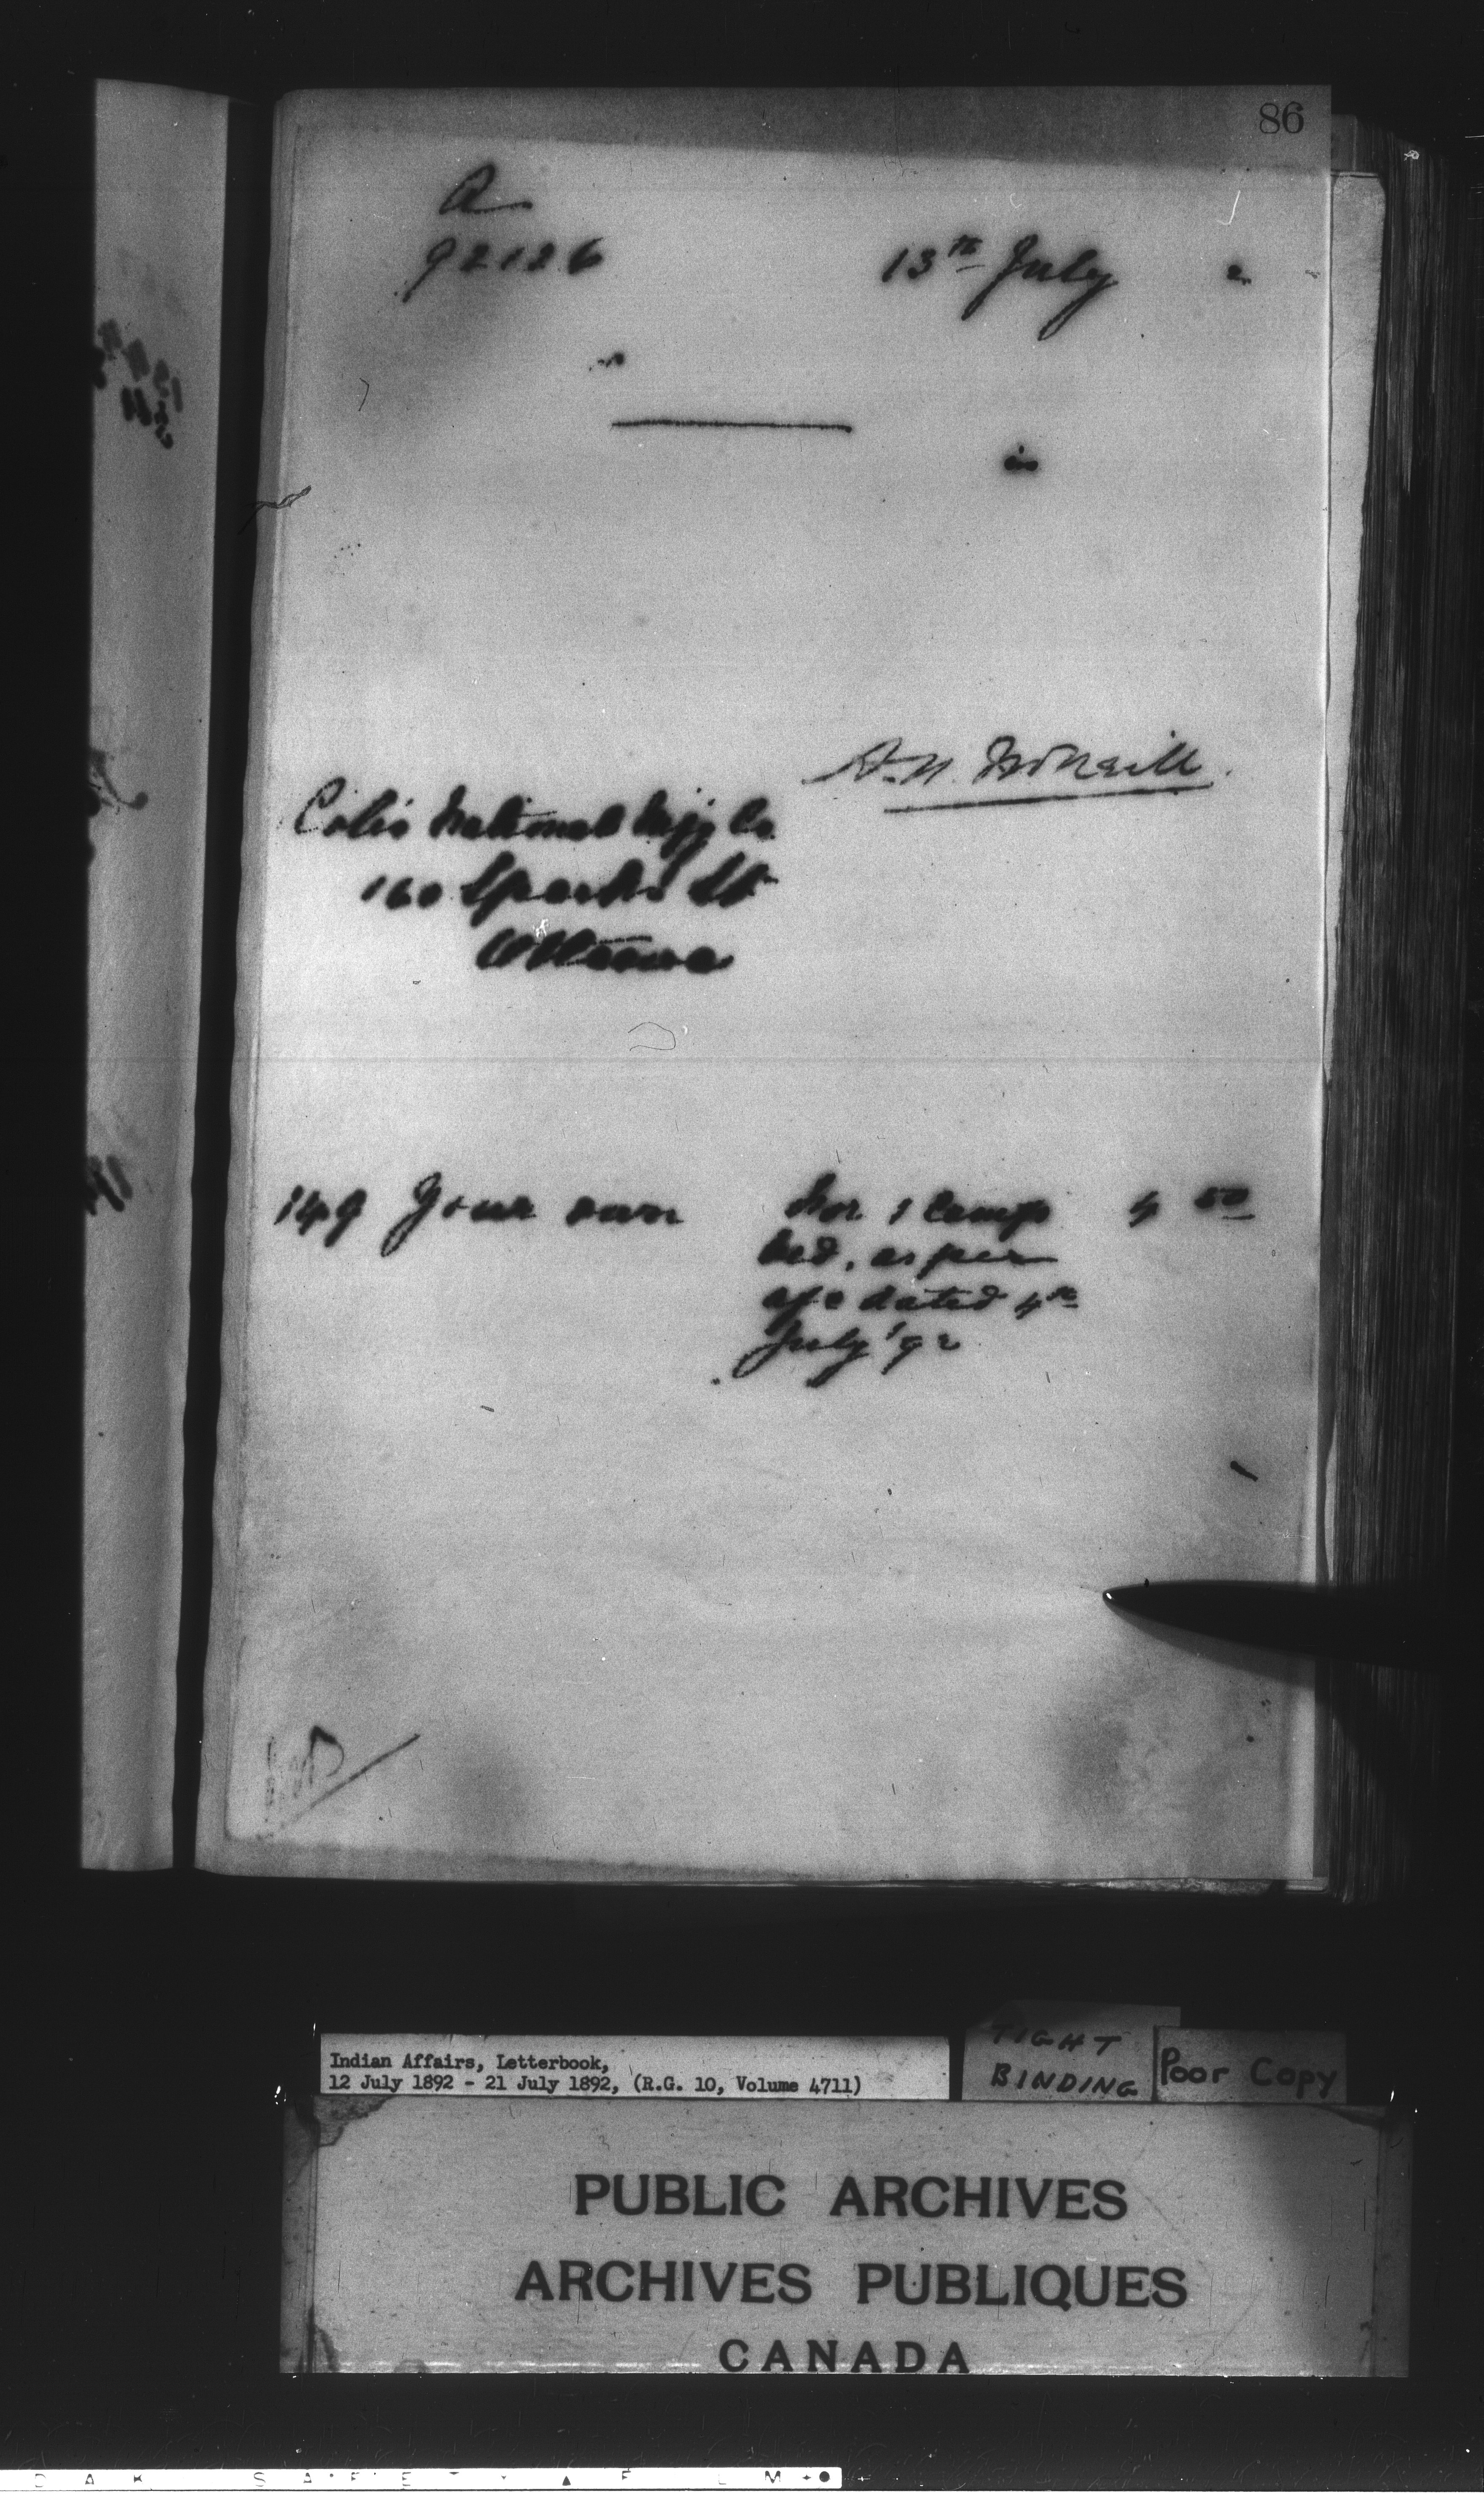 86
A
92126 13th July 2
in
A. N. McNeill
Colis National Mfg Co.
160 Sparks St
Ottawa
149 Your own For 1 Camp 4 50
bed, as per
a/c dated 4th
July '92
Indian Affairs, Letterbook,
12 July 1892 - 21 July 1892, (R.G. 10, Volume 4711)
TIGHT
BINDING
Poor Copy
PUBLIC ARCHIVES
ARCHIVES PUBLIQUES
CANADA